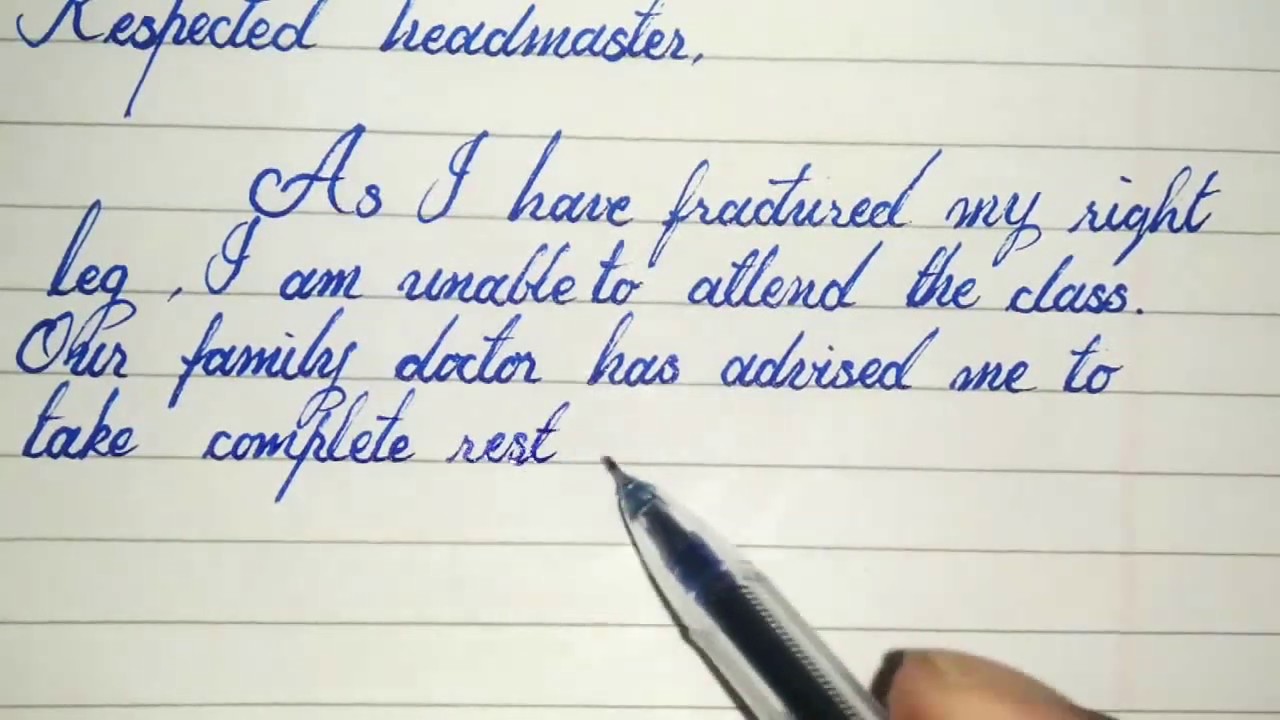 Respected headmaster,
As I have fractured my right
leg , I am unable to attend the class.
Our family doctor has advised me to
take complete rest